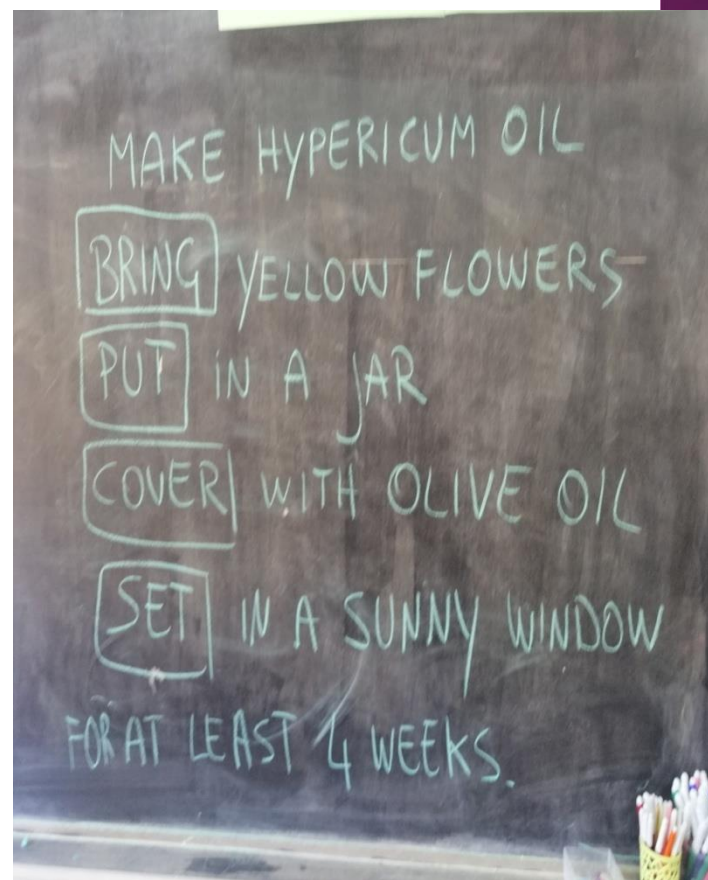 MAKE HYPERICUM OIL
BRING YELLOW FLOWERS
PUT IN A JAR
COVER WITH OLIVE OIL
SET IN A SUNNY WINDOW
FOR AT LEAST 4 WEEKS.